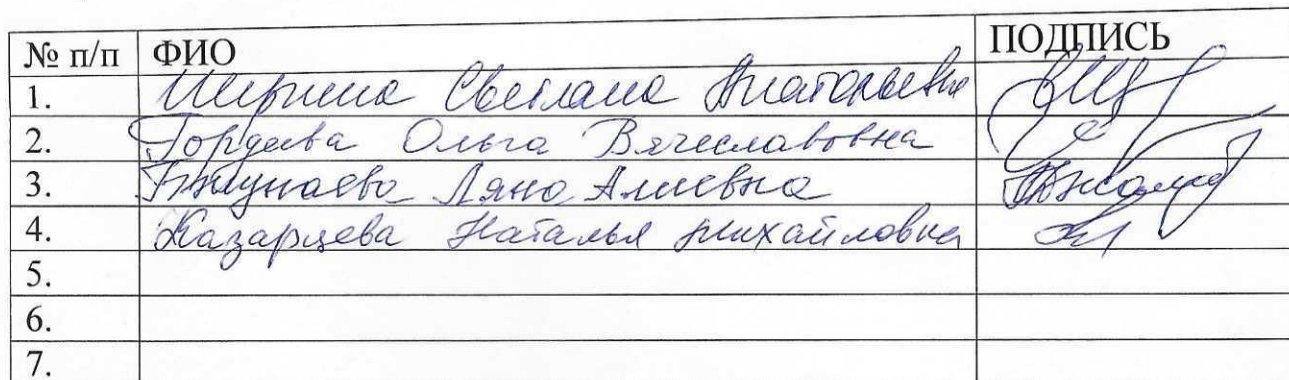 № п/п ФИО ПОДПИСЬ
1. Светлана Анатольевна
2. Гордеева Ольга Вячеславовна
3. Ляна Алиевна
4. Казарцева Наталья Михайловна
5.
6.
7.